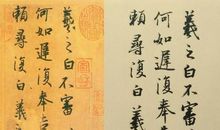 羲之白不審
何如遲復奉告
賴尋復白羲
羲之白不審
何如遲復奉告
賴尋復白羲